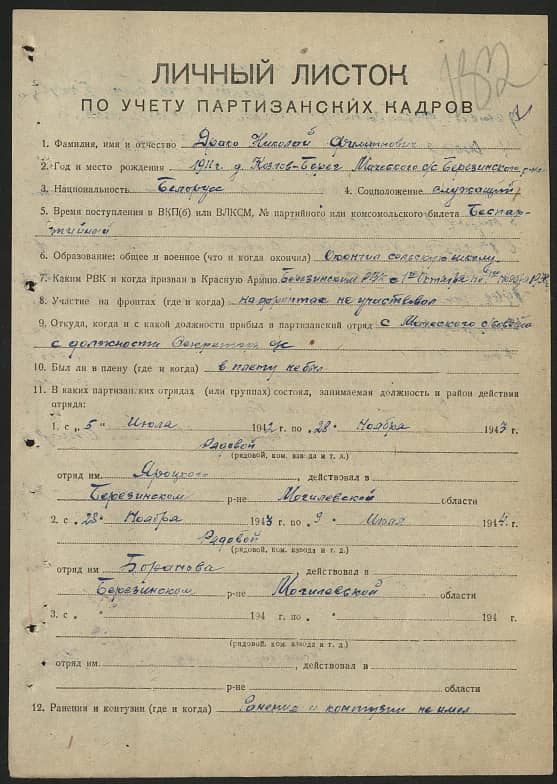 1882
ЛИЧНЫЙ ЛИСТОК
ПО УЧЕТУ ПАРТИЗАНСКИХ КАДРОВ
1. Фамилия, имя и отчество Драко Николай Филиппович
2. Год и место рождения 1911 г. д. Козлов-Берег Мачесского с/с Березинского
3. Национальность Белорус 4. Соцположение служащий
5. Время поступления в ВКП(б) или ВЛКСМ, № партийного или комсомольского билета Беспар-
тийный
6. Образование: общее и военное (что и когда окончил) Окончил сельскую школу
7. Каким РВК и когда призван в Красную Армию Березинским РВК с 1го Октября по ноября
8. Участие на фронтах (где и когда) на фронтах не участвовал
9. Откуда, когда и с какой должности прибыл в партизанский отряд с Мачесского с/совета
с должности Секретаря с/с
10. Был ли в плену (где и когда) в плену не был
11. В каких партизанских отрядах (или группах) состоял, занимаемая должность и район действия
отряда:
1. с „5“ Июля 1942 г. по „28“ Ноября 1943 г.
Рядовой
(рядовой, ком. взвода и т. д.)
отряд им. Яроцкого, действовал в
Березинском р-не Могилевской области
2. с „28“ Ноября 1943 г. по „9“ Июля 1944 г.
Рядовой
(рядовой, ком. взвода и т. д.)
отряд им. Боранова, действовал в
Березинском р-не Могилевской области
3. с „ 194 г. по „ 194 г.
(рядовой, ком. взвода и т. д.)
отряд им. , действовал в
р-не области
12. Ранения и контузии (где и когда) Ранения и контузии не имел